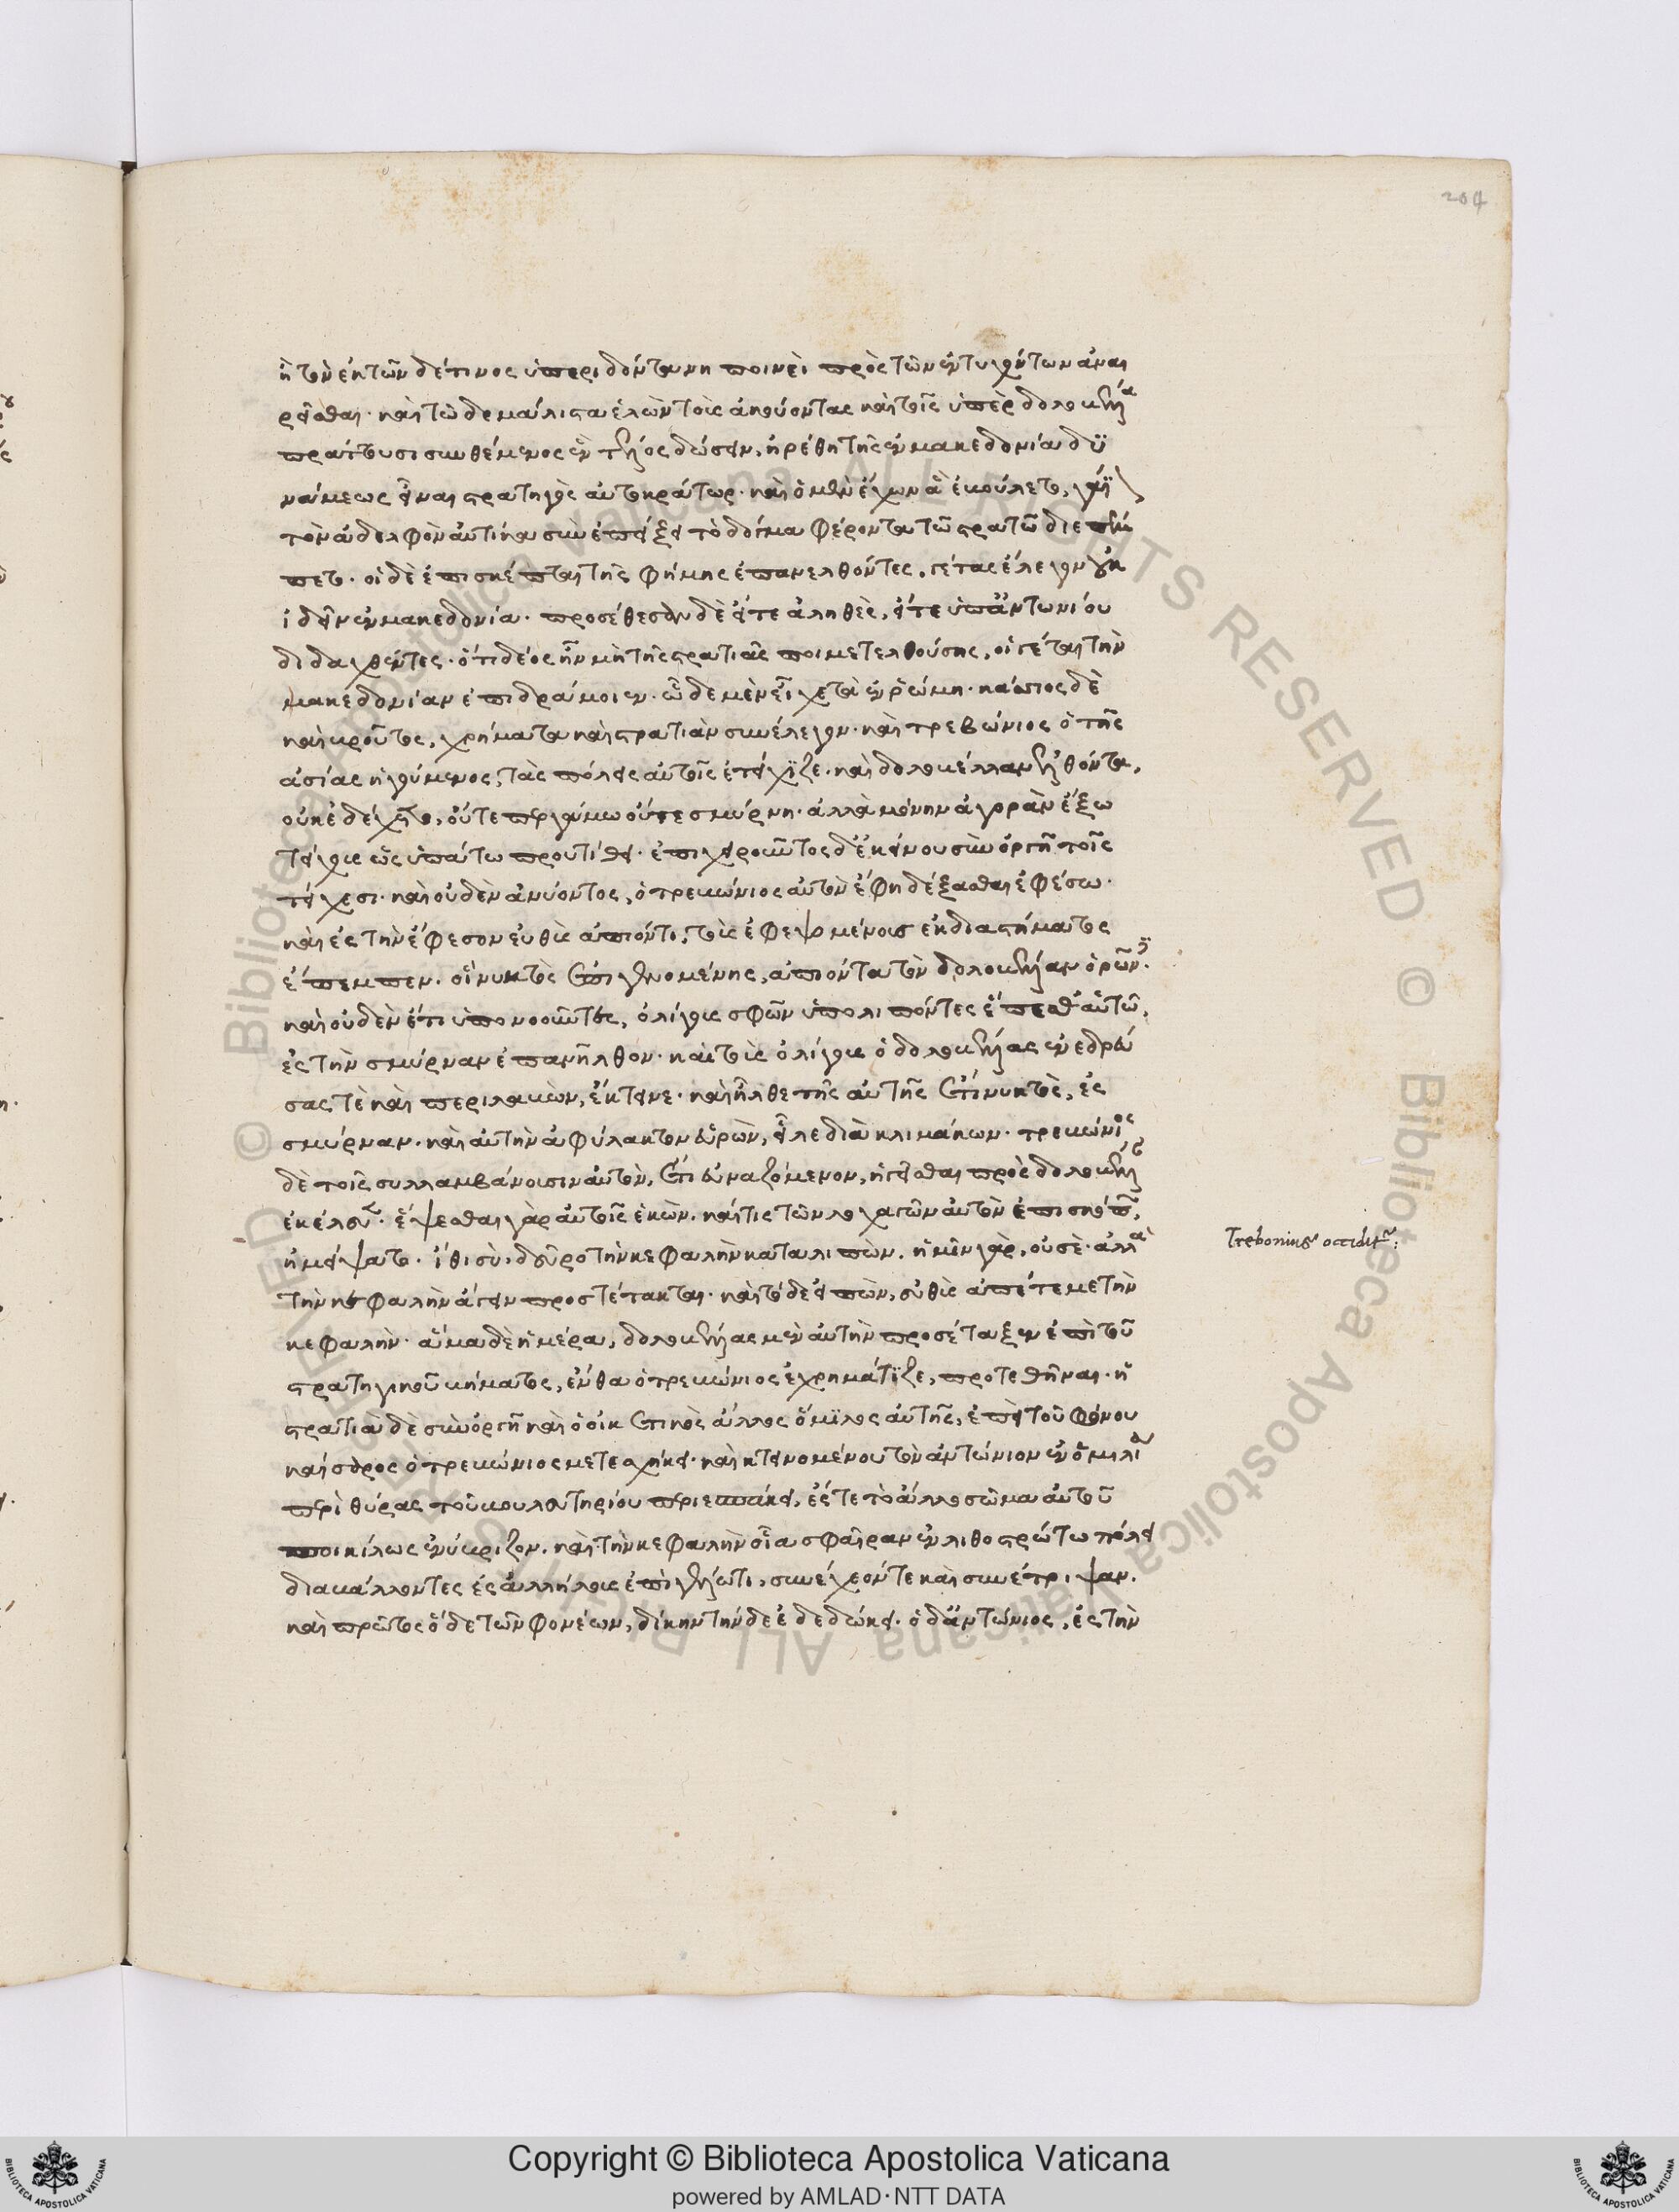 ἢ τὸν ἐκ τῶν δέ τινος ὑπεριδόντα μη ποινεὶ πρὸς τῶν ἐντυχόντων ἀναι
ρεῖσθαι· καὶ τῶδε μάλιστα ἑλὼν τοὺς ἀκούοντας καὶ τοῖς ὑπὲρ δολοβελλία
πράττουσι συνθέμενος ἓν τέλος δώσειν, ἡρέθη τῆς ἐν μακεδονία δϋ
νάμεως εἶναι στρατηγὸς αὐτοκράτωρ· καὶ ὁ μὲν ἔχων ἃ ἐβούλετο, γάϊ
τὸν ἀδελφὸν αὐτίκα σὺν ἐπείξει τὸ δόγμα φέροντα τῶ στρατῶ διεπέμ
πετο· οἱ δὲ ἐπισκέπται τῆς φήμης ἐπανελθόντες, γέτας ἔλεγον οὐκ
ἰδεῖν ἐν μακεδονία· προσέθεσαν δὲ εἴτε ἀληθὲς, εἴτε ὑπ' ἀντωνίου
διδαχθέντες· ὅτι δέος ἦν μὴ τῆς στρατιᾶς ποι μετελθούσης, οἱ γέται τὴν
μακεδονίαν ἐπιδράμοιεν· ὧδε μὲν εἶχε τὰ ἐν ῥώμη· κάσσιος δὲ
καὶ βροῦτος, χρήματα καὶ στρατιὰν συνέλεγον· καὶ τρεβώνιος ὁ τῆς
ἀσίας ἡγούμενος, τὰς πόλεις αὐτοῖς ἐτείχϊζε· καὶ δολοκέλλαν ἐλθόντα,
οὐκ ἐδέχετο, οὔτε περγάμω οὔτε σμύρνη· ἀλλὰ μόνην ἀγορὰν ἔξω
τείχους ὡς ὑπάτω προυτίθει· ἐπιχειροῦντος δ' ἐκείνου σὺν ὀργῆ τοῖς
τείχεσι· καὶ οὐδὲν ἀνύοντος, ὁ τρεβώνιος αὐτὸν ἔφη δέξασθαι ἐφέσω·
καὶ ἐς τὴν ἔφεσον εὐθὺς ἀπιόντι, τοὺς ἐφεψομένους ἐκ διαστήματος
ἔπεμπεν· οἳ νυκτὸς ἐπιγενομένης, ἀπιόντα τὸν δολοβελλίαν ὁρῶντες·
καὶ οὐδὲν ἔτι ὑπονοοῦντες, ὀλίγους σφῶν ὑπολιπόντες ἕπεσθ' αὐτῶ,
ἐς τὴν σμύρναν ἐπανῆλθον· καὶ τοὺς ὀλίγους ὁ δολοβελλίας ἐνεδρεύ
σας τὲ καὶ περιλαβὼν, ἔκτεινε· καὶ ἦλθε τῆς αὐτῆς ἔτι νυκτὸς, ἐς
σμύρναν· καὶ αὐτὴν ἀφύλακτον εὑρὼν, εἷλε διὰ κλιμάκων· τρεβώνιος
δὲ τοῖς συλλαμβάνουσιν αὐτὸν, ἔτι εὐναζόμενον, ἡγεῖσθαι πρὸς δολοβελλίαν
ἐκέλευεν· ἕψεσθαι γὰρ αὐτοῖς ἑκὼν· καί τις τῶν λοχαγῶν αὐτὸν ἐπισκώπτων,
ἠμείψατο· ἴθι σὺ, δεῦρο τὴν κεφαλὴν καταλιπὼν· ἡμῖν γὰρ, οὐ σὲ· ἀλλὰ
τὴν κεφαλὴν ἄγειν προστέτακται· καὶ τόδε εἰπὼν, εὐθὺς ἀπέτεμε τὴν
κεφαλὴν· ἅμα δὲ ἡμέρα, δολοβελλίας μὲν αὐτὴν προσέταξεν ἐπὶ τοῦ
στρατηγικοῦ βήματος, ἔνθα ὁ τρεβώνιος ἐχρημάτϊζε, προτεθῆναι· ἡ
στρατιὰ δὲ σὺν ὀργῆ καὶ ὁ οἰκετικὸς ἄλλος ὅμϊλος αὐτῆς, ἐπεὶ τοῦ φόνου
καίσαρος ὁ τρεβώνιος μετεσχήκει· καὶ κτεινομένου τὸν ἀντώνιον ἐν ὁμιλία
περὶ θύρας τοῦ βουλευτηρίου περιεσπάκει, ἔς τε τὸ ἄλλο σῶμα αὐτοῦ
ποικίλως ἐνύβριζον· καὶ τὴν κεφαλὴν οἷα σφαῖραν ἐν λιθοστρώτω πόλει
διαβάλλοντες ἐς ἀλλήλους ἐπὶ γέλωτι, συνέχεόν τε καὶ συνέτριψαν·
καὶ πρῶτος ὅδε τῶν φονέων, δίκην τήνδε ἐδεδώκει· ὁ δ' ἀντώνιος, ἐς τὴν
Trebonius occidit~:
204
Copyright © Biblioteca Apostolica Vaticana
powered by AMLAD·NTT DATA